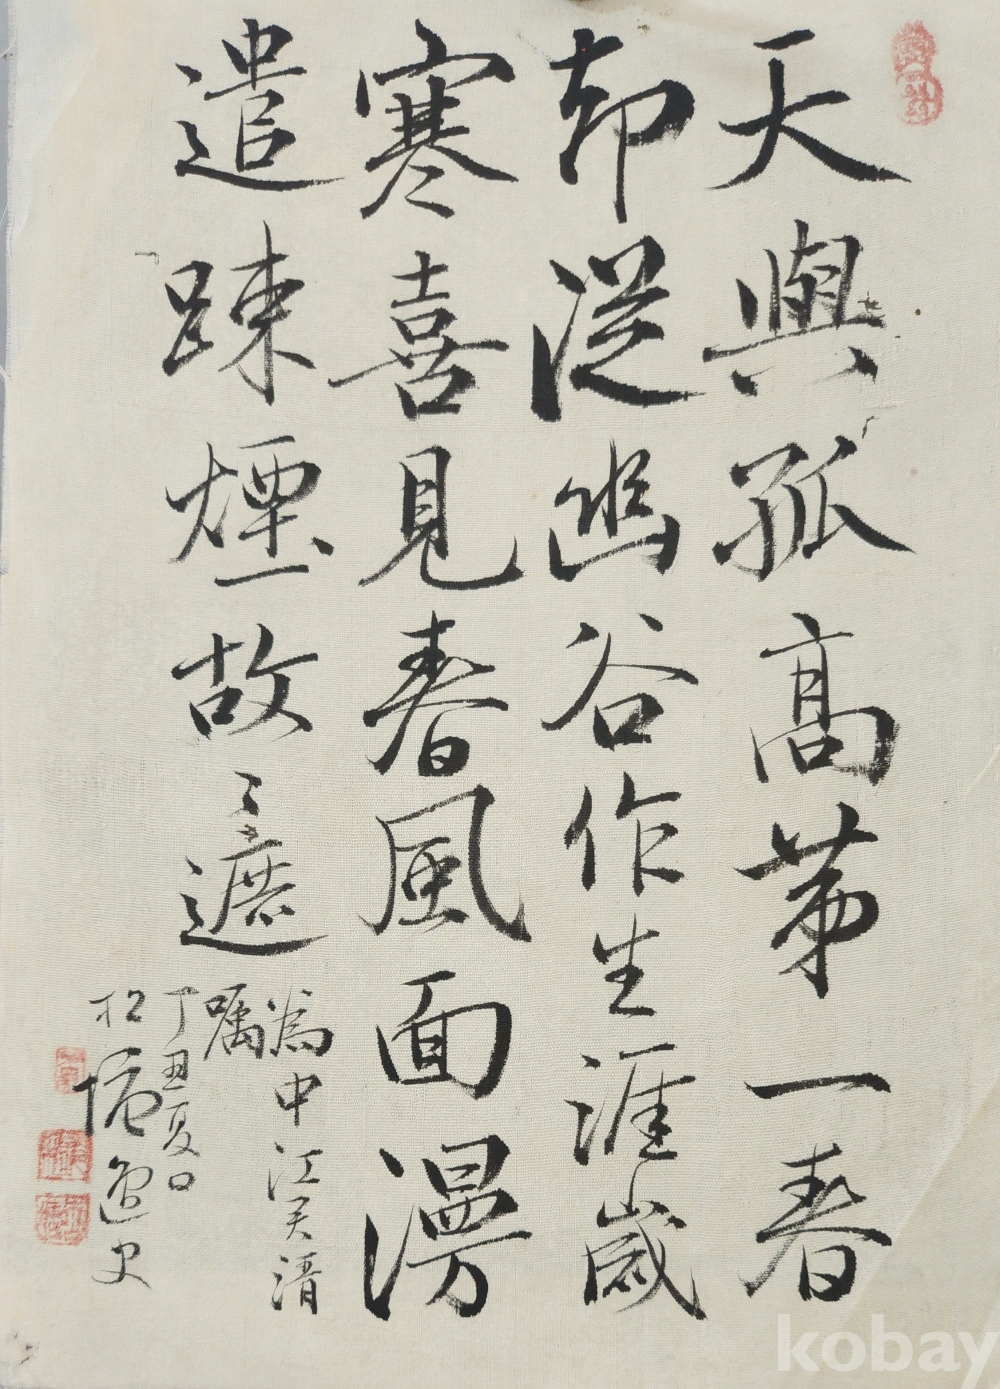 天與孤高第一春
却從幽谷作生涯歲
寒喜見春風面漫
遣踈煙故〻遮
為中江天清
囑
丁丑夏日
松隱逸史
kobay